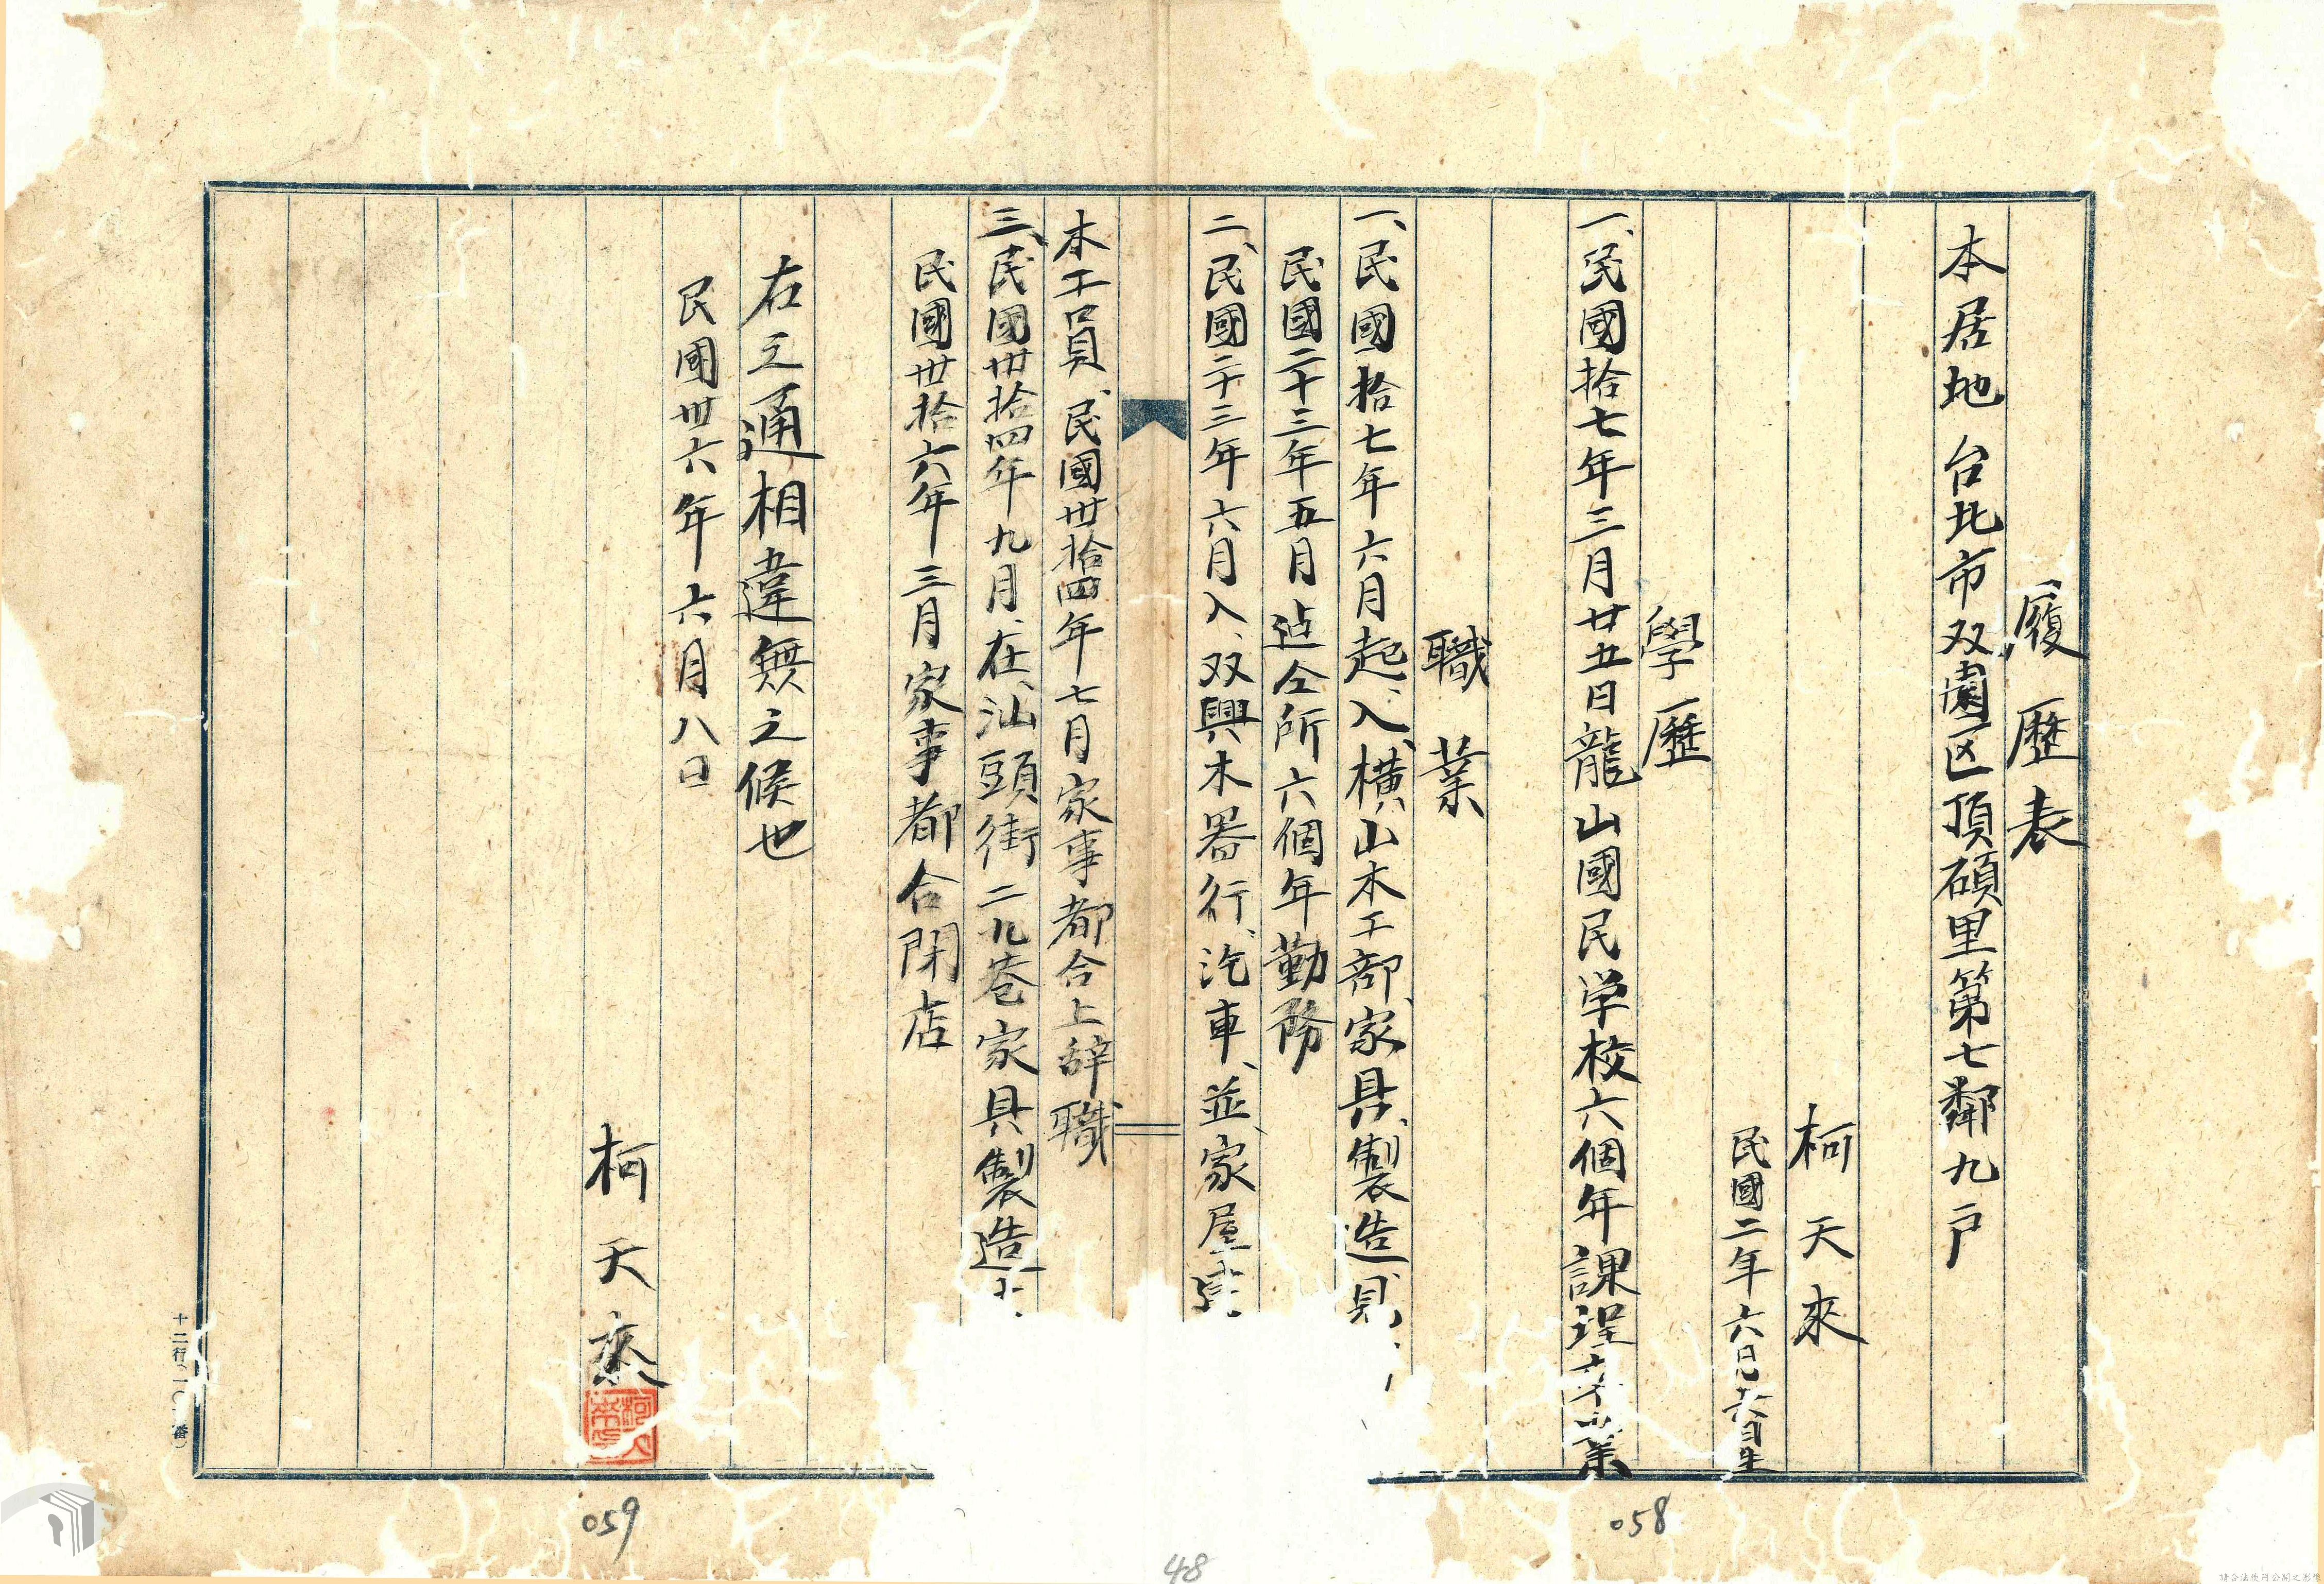 履歷表
本居地 台北市双園区頂碩里第七鄰九戸
柯天來
民國二年六月
學歷
一、民國拾七年三月廿五日龍山國民学校六個年課程業
職業
一、民國拾七年六月起、入、横山木工部、家具、製造、見
民國二十三年五月迠仝所六個年勤務
二、民國二十三年六月入、双興木器行、汽車、並、家屋
木工員、民國卅拾四年七月家事都合上辞職
三、民國卅拾四年九月、在、汕頭街二九巷家具製造
民國卅拾六年三月家事都合閉店
右之通相違無之候也
民國卅六年六月八日
柯天來
十二行(一〇 番)
058
059
48
請合法使用公開之影像